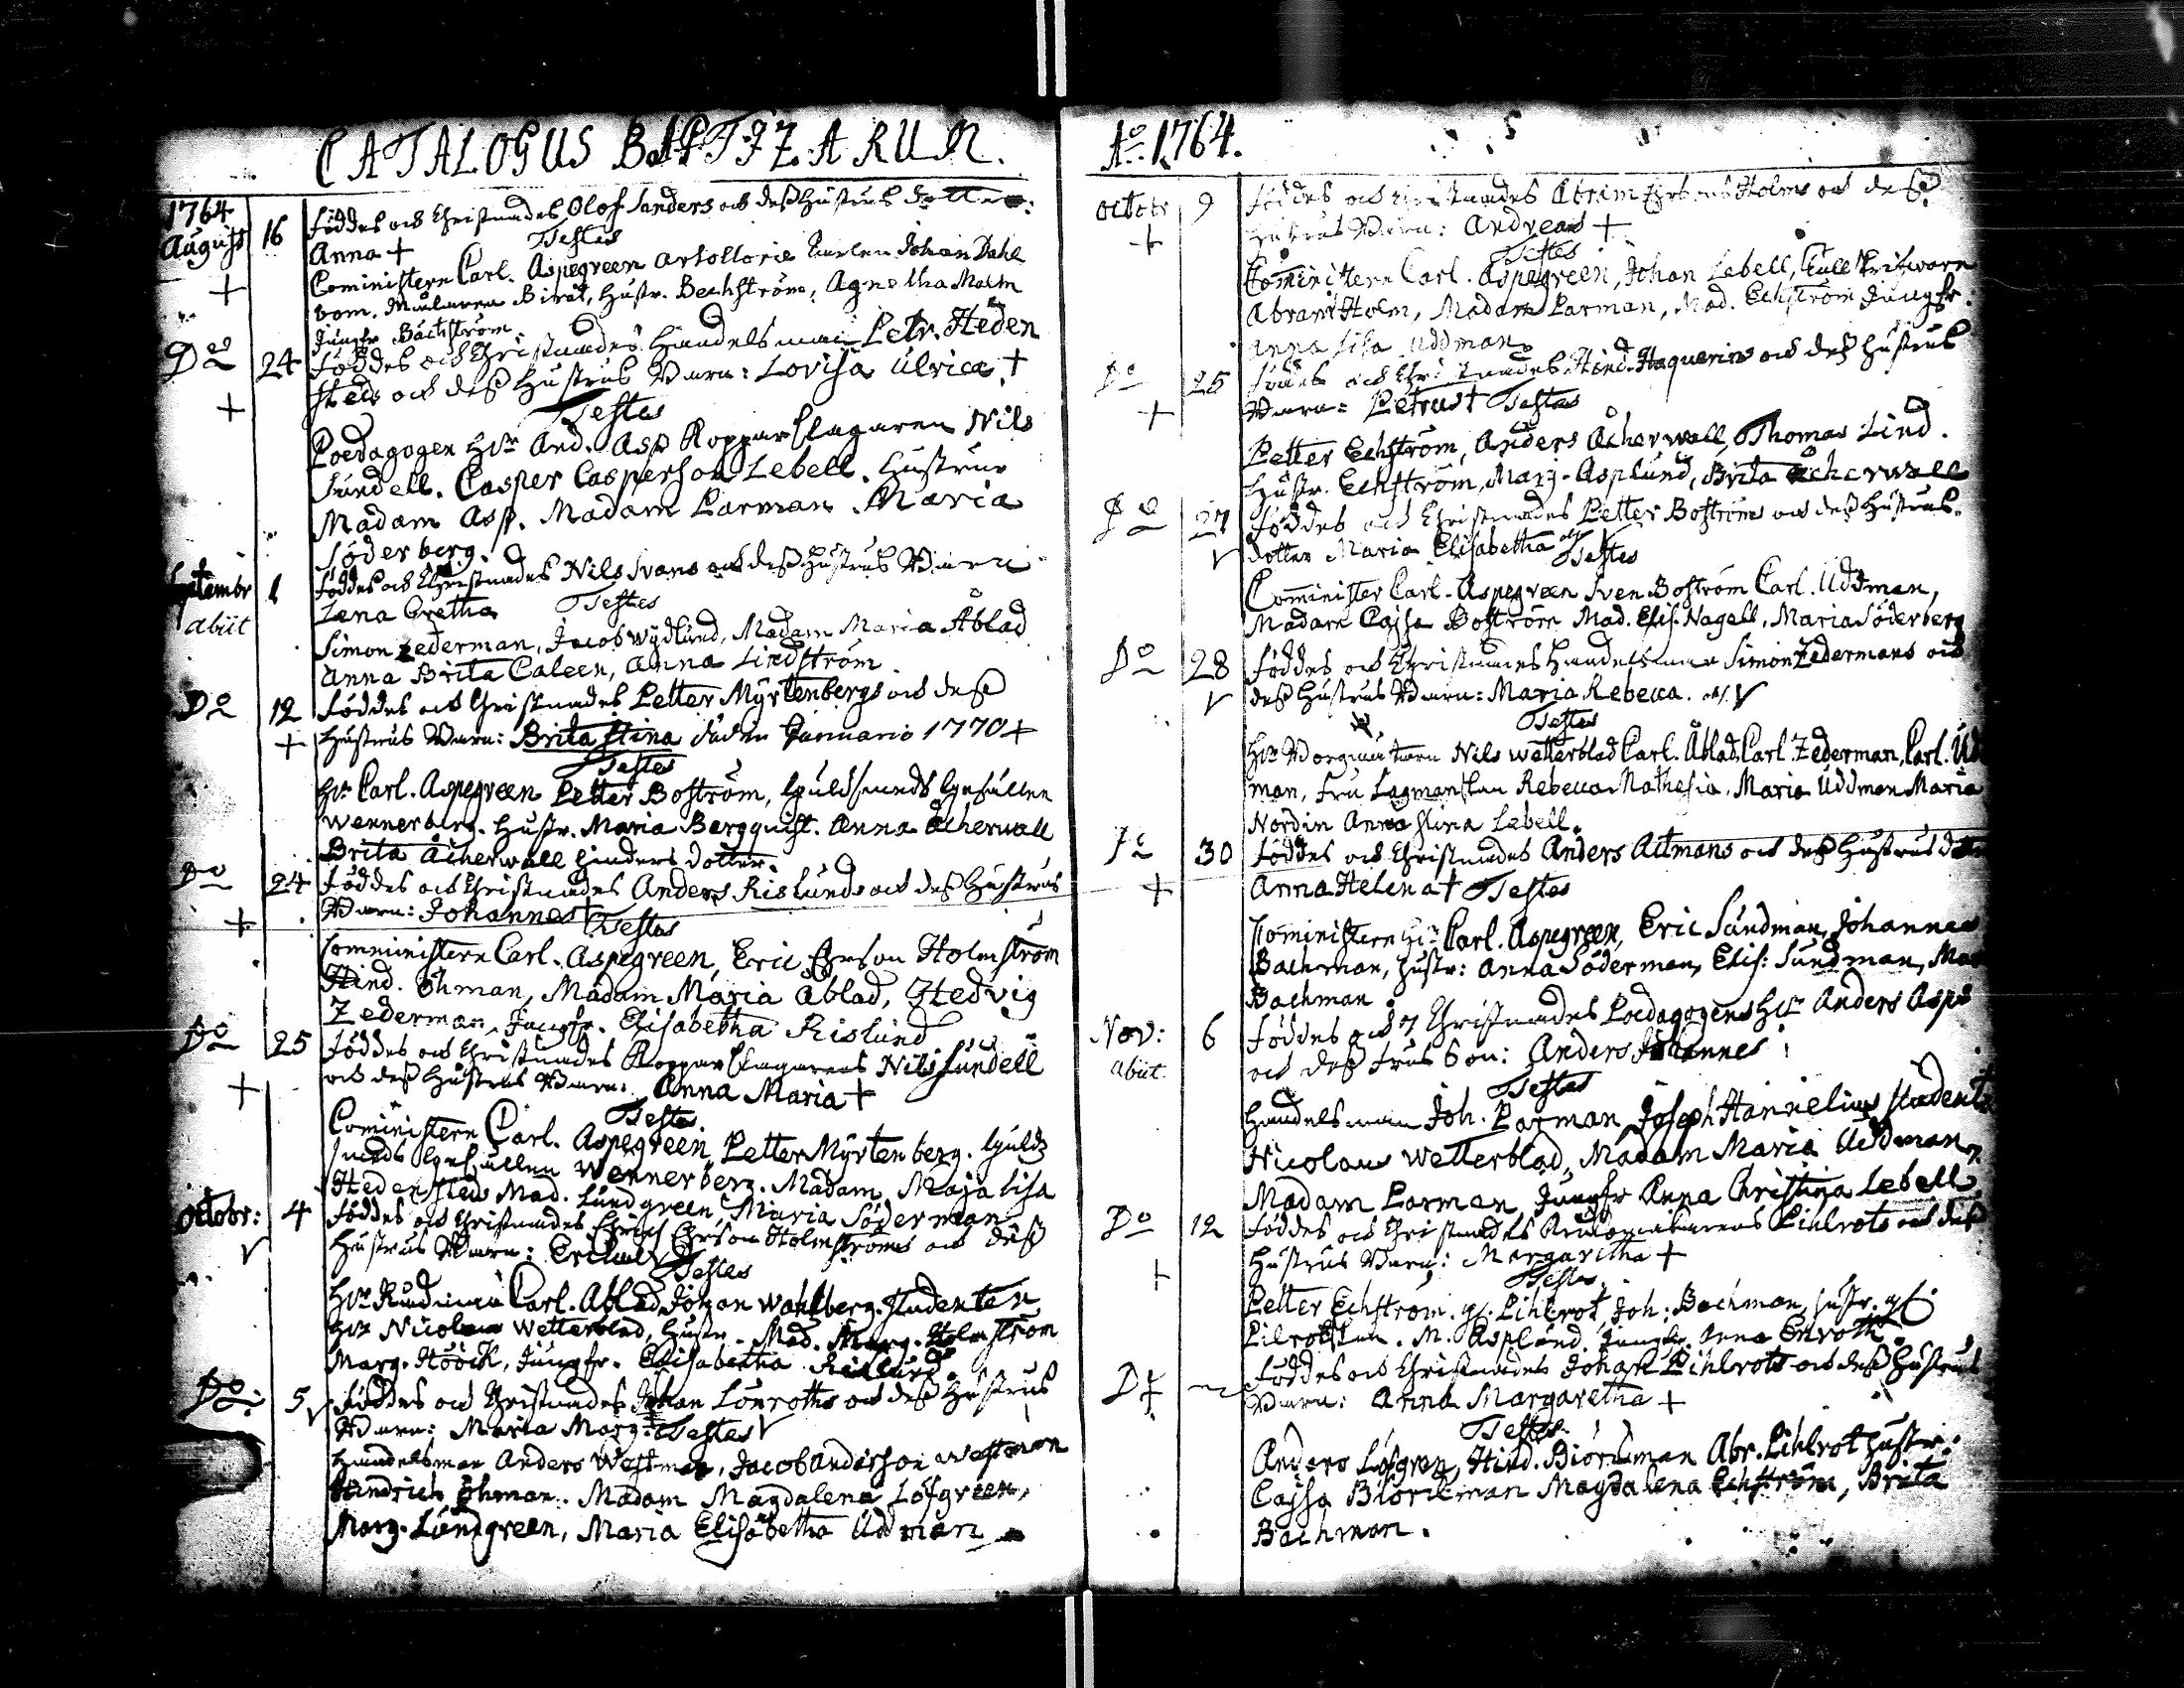 CATALOGUS BAPTIZARUM.
1764
August 16 föddes och Christnades Olof Sanders och deß hustrus dotter:
Anna +
Testes
+ Cominstern Carl. Aspegreen Johan Dahl
bom, Hustr. Bechström, Agnetha Malm
Jungfr Bäckström.
Do 24 föddes och Christnades Handelsman Petr. Heden
steds och deß hustrus Barn: Lovisa Ulrica. +
+ Testes
Poedagogen Hr And. Asp Kopparslagaren Nils
Sundell. Casper Casperson Lebell. Hustrur
Madam Asp. Madam Parman Maria
Söderberg.
Septembr 1 föddes och Christnades Nils Svans och deß hustrus Barn
Lena Gretha Testes
abiit
Simon Zederman, Jacob Wydlund, Madam Maria Åblad
Anna Brita Caleen, Anna Lindström
Do 12 föddes och Christnades Petter Myrtenbergs och deß
+ hustrus Barn: Brita Stina döden Januario 1770 +
Testes
Hr Carl. Aspegreen Petter Boström, Guldsmeds Gesällen
Wennerberg. Hustr. Maria Bergquist. Anna Åcherwall
Brita Åcherwall dotter.
Do 24 föddes och Christnades Anders Rislunds och deß hustrus
+ Barn: Johannes +
Testes
Comministern Carl. Aspegreen, Eric Erson Holmström
Hind. Öhman, Madam Maria Åblad, Hedvig
Zederman, Jungfr. Elisabetha Rislund
Do 25 föddes och Christnades Kopparslagarens Nils Sundell
och deß hustrus Barn: Anna Maria +
+ Testes
Cominstern Carl. Aspegreen Petter Myrtenberg. Guld
smeds Gesällen Wennerberg. Madam Maja Lisa
Hedensteds Mad. Lundgreen, Maria Söderman
Octobr: 4 föddes och Christnades Erich Erson Holmströms och deß
V hustrus Barn: Ericus V
Testes
Hr Carl. Åblad Johan Wahlberg. Studenten
Hr Nicolaus Wetterblad, Hustr. Mad. Marg. Holmström
Marg. Höök, Jungfr. Elisabetha Rislund
Do: 5 föddes och Christnades Johan Lönroths och deß hustrus
V Barn: Maria Marg: Testes V
Handelsman Anders Westman, Jacob Anderson Westman
Hindrich Öhman. Madam Magdalena Löfgreen,
Marg. Lundgreen, Maria Elisabetha Uddman
Ao. 1764.
Octobr 9 föddes och Christnades Abram Ersons Holms och deß
+ hustrus Barn: Andreas +
Testes
Cominstern Carl. Aspegreen, Johan Lebell,
Abram Holm, Madam Parman, Mad. Echström Jungfr.
Anna Lisa Uddman
Do 25 föddes och Christnades Hind. Haquerins och deß hustrus
+ Barn: Petrus + Testes
Petter Echström, Anders Åcherwall, Thomas Lind.
Hustr. Echström, Marg. Asplund, Brita Åcherwall
Do 27 föddes och Christnades Petter Boströms och deß hustrus
V dotter Maria Elisabetha Testes
Cominister Carl. Aspegreen Sven Boström Carl. Uddman,
Madam Cajsa Boström Mad. Elis. Nagell, Maria Söderberg
Do 28 föddes och Christnades Handelsman Simon Zedermans och
V deß hustrus Barn: Maria Rebecca. V
Testes
Hr Nils Wetterblad Carl. Åblad, Carl. Zederman, Carl. Ud
man, Fru Lagmanskan Rebecca Mathesia. Maria Uddman Maria
Nordin Anna Stina Lebell.
Do 30 föddes och Christnades Anders Altmans och deß hustrus dotter
+ Anna Helena + Testes
Cominstern Hr Carl. Aspegreen, Eric Sundman, Johannes
Bachman, Hustr: Anna Söderman, Elis: Sundman, Mar
Bachman
Nov: 6 föddes och 7 Christnades Poedagogens Hr Anders Asps
abiit och deß Frus Son: Anders Johannes
Testes
Handelsman Joh. Parman Joseph Hannelius student
Nicolaus Wetterblad, Madam Maria Uddman,
Madam Parman, Jungfr Anna Christina Lebell
Do 12 föddes och Christnades Pihlrots och deß
hustrus Barn: Margaritha +
+ Testes
Petter Echström. Pihlrot, Joh: Bachman, hustr.
M. Asplund. Jungfr. Anna Enroth
Do föddes och Christnades Johan Pihlrots och deß hustrus
+ Barn: Anna Margaretha +
Testes
Anders Löfgren, Hind. Biörkman Abr. Pihlrot hustr:
Cajsa Biörkman Magdalena Echström, Brita
Bachman.